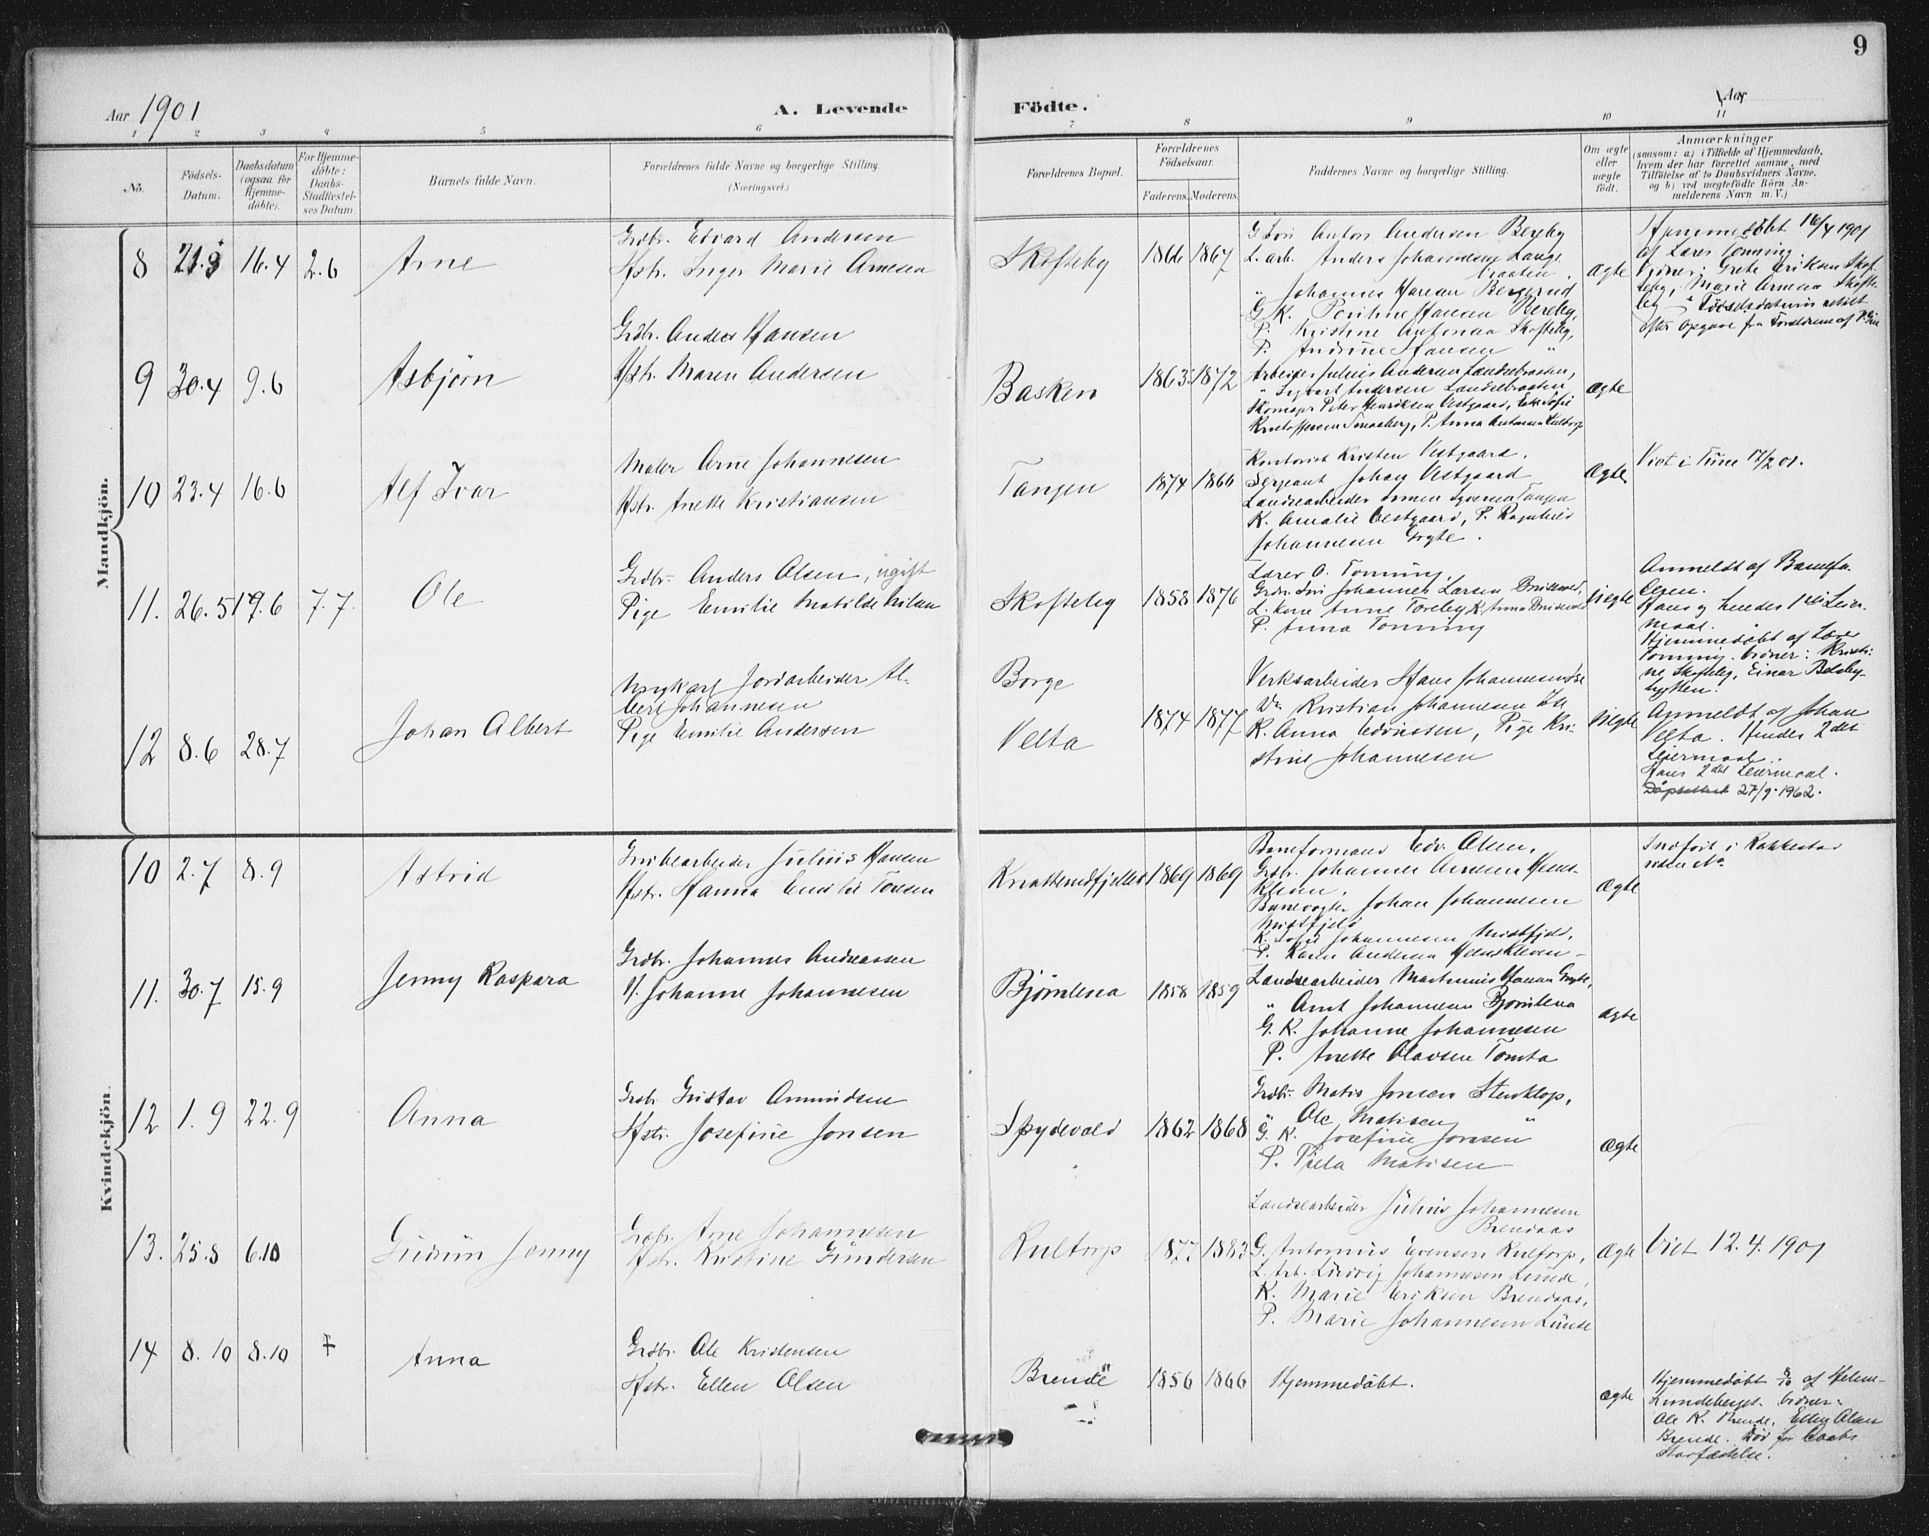 9
Aar 1901
A. Levende
Födte.
Aar
1 2 3 4 5 6 7 8 9 10 11
No.
Födsels-Datum.
Daabsdatum (ogsaa for Hjemme-döbte).
For Hjemme-döbte: Daabs-Stadfæstel-ses Datum
Barnets fulde Navn.
Forældrenes fulde Navne og borgerlige Stilling
(Næringsvei.)
Forældrenes Bopæl.
Forældrenes Födselsaar.
Faderens. Moderens.
Faddernes Navne og borgerlige Stilling.
Om ægte eller uægte födt.
Anmærkninger
(saasom: a) i Tilfælde af Hjemmedaab,
hvem der har forrettet samme, med
Tilföielse af to Daabsvidners Navne,
og b) ved uægtefödte Börn An-
melderens Navn m. V.)
Mandkjön.
8 21.3 16.4 2.6 Arne
Grdbr. Edvard Andersen
Hstr. Inger Marie Arnesen
Skofteby 1866 1867
Anton Andersen Bergby
L. arb. Anders Johannesen Lange-
braaten.
" Johannes Hansen Bergerud
G. K. Hansen
P. Kristine Antonsen Skofteby,
P. Andrine Hansen "
ægte
Hjemmedøbt 16/4 1901
af Lærer Tonning
Vidner: Grete Eriksen Skof-
teby, Marie Arnesen Skofte-
by - Fødselsdatum rettet
efter Opgave fra Forældrene af
9 30.4 9.6 Asbjørn
Grdbr. Anders Hansen
Hstr. Maren Andersen
Basken 1863 1872
Arbeider Julius Andersen Landsebraaten,
" Andersen Landsebraaten,
Skomager Peter Henriksen Vestgaard,
Kristoffersen P. Anna Antonsen Kultorp
ægte
10 23.4 16.6 Alf Ivar
Maler Arne Johannesen
Hstr. Anette Kristiansen
Tangen 1874 1866
Kristen Vestgaard.
Sergeant Johan Vestgaard
Landsearbeider Syversen Tangen
K. Amalie Vestgaard, P. Ragnhild
Johannesen Grgte.
Ægte
Viet i Tune 17/2 01.
11. 26.5 19.6 7.7. Ole
Grdbr. Anders Olsen, ugift
Pige Emilie Matilde Nilsen
Skofteby 1858 1876
Lærer O. Tonning,
Johannes Larsen
L. kone Anne Toreby K. Anna
P. Anna Tonning
Uægte
Anmeldt af Barnefa-
deren.
Hans og hendes 1ste Leier-
maal.
Hjemmedøbt af Lærer
Tonning. Vidner: Kristi-
ne Skofteby, Einar
12 8.6 28.7 Johan Albert
Ungkarl Jordarbeider Al-
bert Johannesen
Pige Emilie Andersen
Borge
Velta
1874 1877
Verksarbeider Hans Johannesen
Do Kristian Johannesen
K. Anna Edvinsen, Pige Kri-
stine Johannesen
Uægte
Anmeldt af Johan
Velta. Hendes 2det
Leiermaal.
Hans 2det Leiermaal.
Dåpsattest 27/9.1962.
Kvindekjön.
10 2.7 8.9 Astrid
Grubearbeider Julius Hansen
Hstr. Hanna Emilie Toresen
Knatterudfjellet 1869 1869
Baneformand Edv. Olsen,
Grdbr. Johannes Andersen
kleven.
Banevogter Johan Johannesen
Midtfjeld
K. Johannesen Midtfjeld,
P. Karen Andersen
Ægte
Indført i Rakkestad
uden No
11. 30.7 15.9 Jenny Kaspara
Grdbr. Johannes Andreassen
H. Johanne Johannesen
Bjørnlena 1858 1859
Landsearbeider Martinius Hansen
" Arnt Johannesen Bjørnlena
G. K. Johanne Johannesen
P. Anette Olavsen Tomta
ægte
12 1.9 22.9 Anna
Grdbr. Gustav Amundsen
Hstr. Josefine Jonsen
Spydevold 1862 1868
Grdbr. Matis Jonsen Stenklop,
" Ole Matisen "
G. K. Josefine Jonsen
P. Matisen
Ægte
13. 25.8 6.10 Gudrun Jenny
Grdbr. Arne Johannesen
Hstr. Kristine Gundersen
Kultorp 1877 1882
Landsearbeider Julius Johannesen
Brendaas
G. Antonius Evensen Kultorp,
L. Arb. Ludvig Johannesen Lunde,
K. Marie Eriksen Brendaas,
P. Marie Johannesen Lunde
Ægte
Viet 12.4.1901
14 8.10 8.10 ‡ Anna
Grdbr. Ole Kristensen
Hstr. Ellen Olsen
Brende 1856 1866
Hjemmedøbt.
Ægte
Hjemmedøbt 8/10 af Helene
Lundeberget. Vidner:
Ole K. Brende, Ellen Olsen
Brende. Død før Daabs
Stadfæstelse.